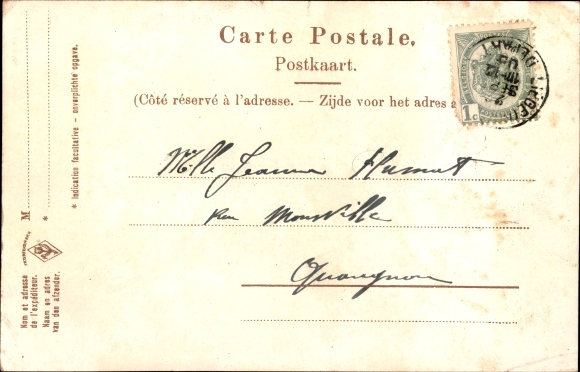 Carte Postale.
Postkaart.
(Côté réservé à l'adresse. — Zijde voor het adres
1c
LIEGE
DEPART
Mlle Jeanne Humet
Rue Monsville
Quaregnon
* Indication facultative - onverplichte opgave.
M
*
Nom et adresse
de l'expéditeur.
Naam en adres
van den afzender.